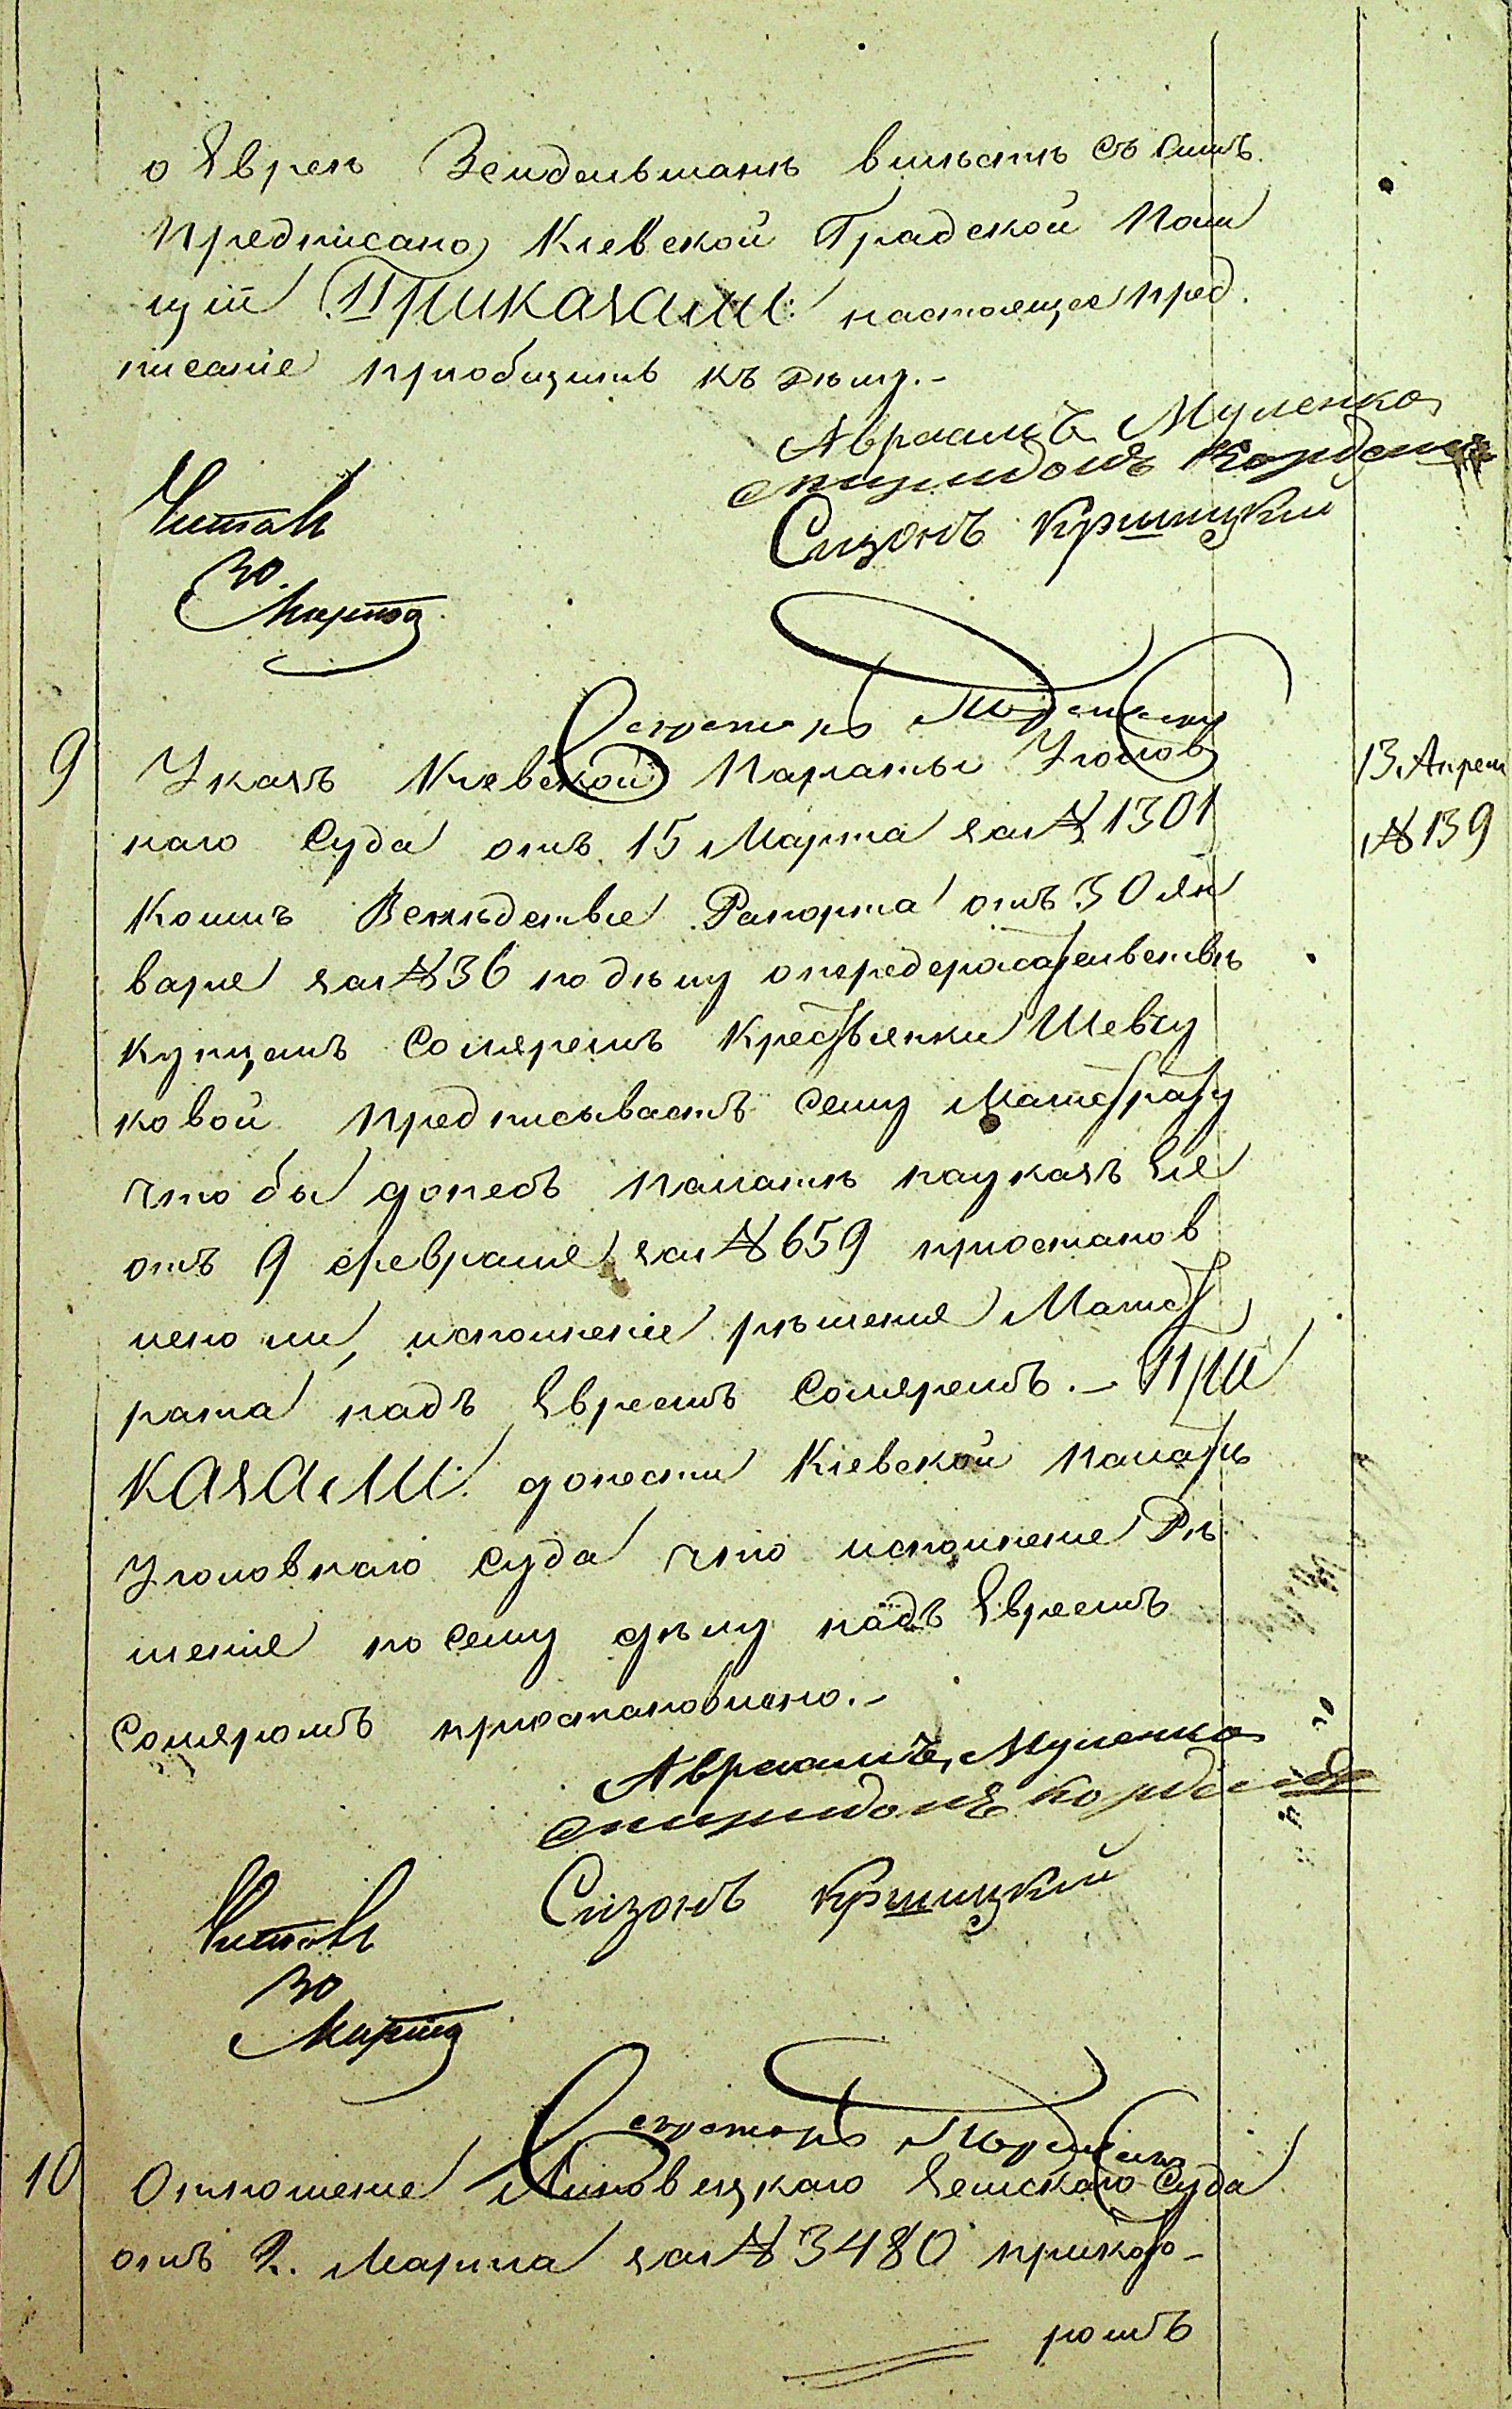 о Евреѣ Зейдельманѣ вмѣстѣ съ симъ
предписано Кіевской Градской Поли
ціи Приказали: настоящее пред
писаніе пріобщить къ дѣлу.-
Авраамъ Муленко
Спиридонъ
Сизонъ Криницкій
Читалъ
30
Марта
Секретарь
9 Указъ Кіевской Палаты Уголов
13 Апреля
наго Суда отъ 15 Марта за № 1301
№ 139
коимъ Вслѣдствіе Рапорта отъ 30 Ян
варя за № 36 по дѣлу о передержательствѣ
купцемъ Соляремъ Крестьянки Шевчу
ковой предписываетъ сему Магистрату
что бы донесъ Палатѣ по указъ Ея
отъ 9 февраля за № 659 пріостанов
лено ли, исполненіе рѣшенія Магист
рата надъ Евреемъ Соляремъ. - При
казали: донести Кіевской Палатѣ
Уголовнаго Суда что исполненіе Рѣ
шенія по сему дѣлу надъ Евреемъ
Соляромъ пріостановлено.-
Авраамъ Муленко
Спиридонъ
Сизонъ Криницкій
Читалъ
30
Марта
Секретарь
10 Отношеніе Липовецкаго Земскаго Суда
отъ 2. Марта за № 3480 при кото-
ромъ